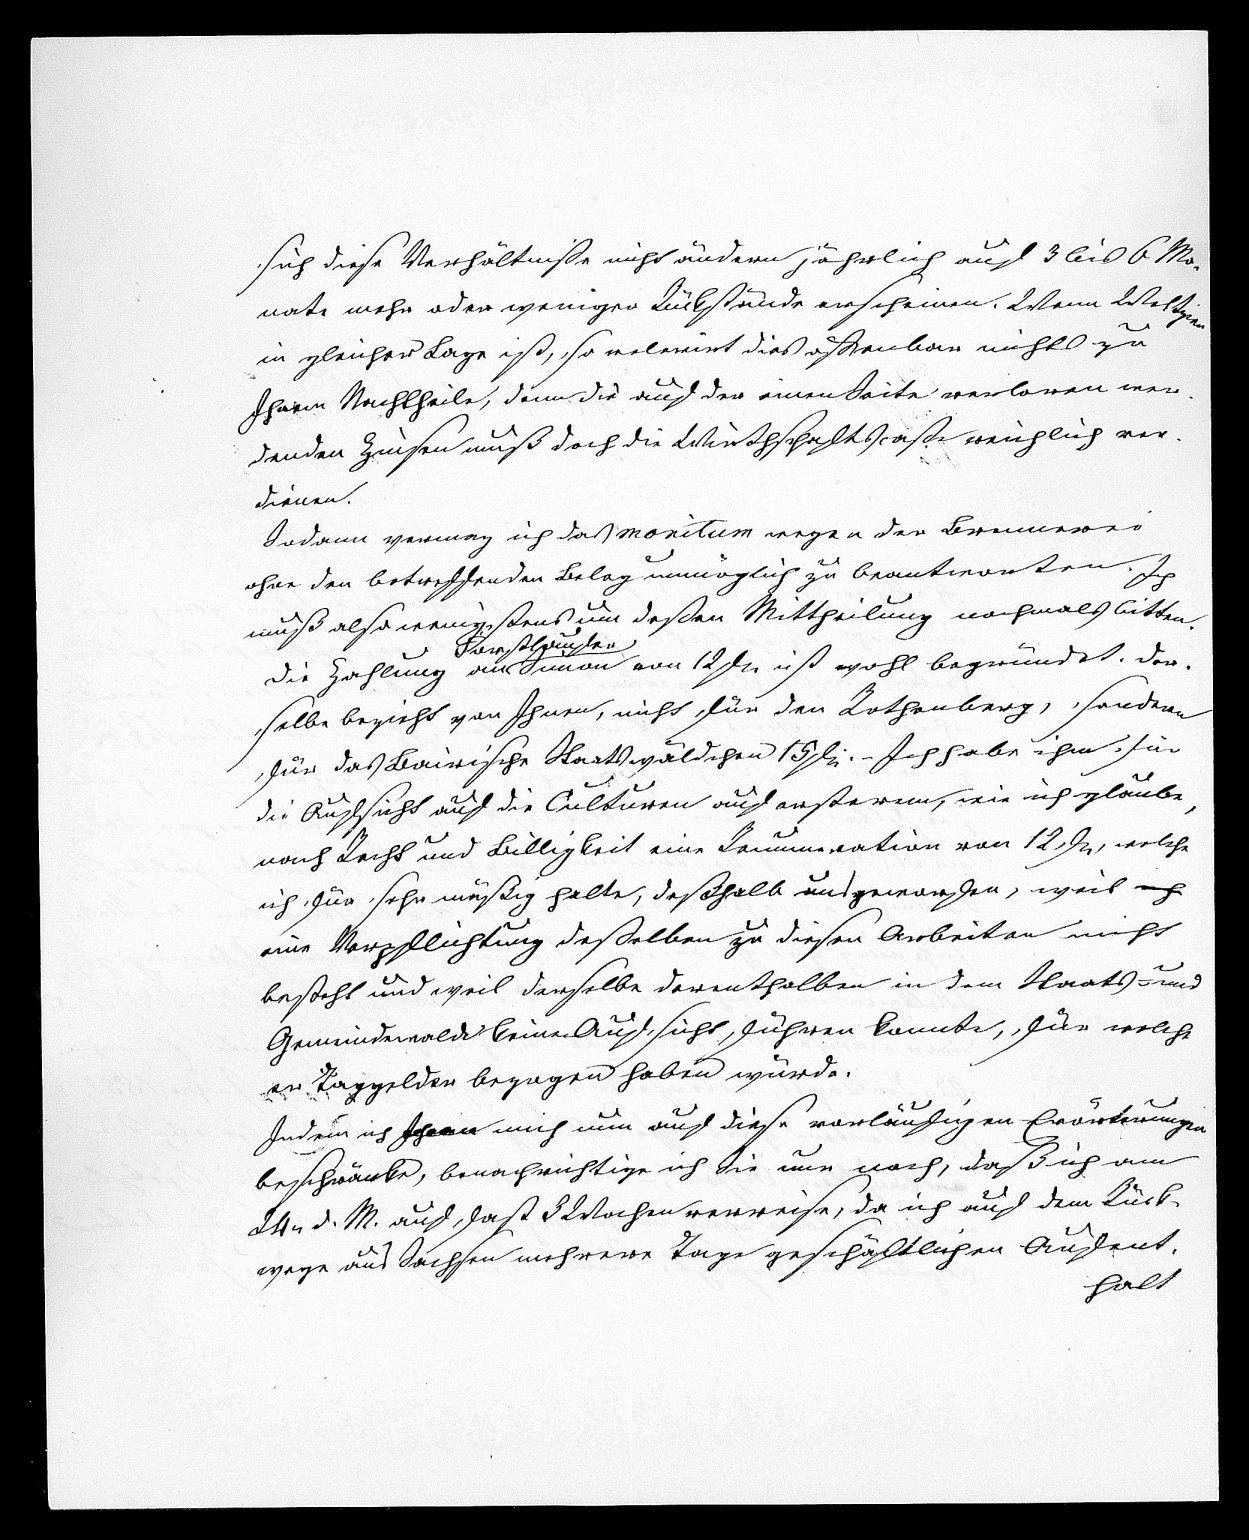 sich diese Verhältniße nicht ändern jährlich auf 3 bis 6 Mo-
nate mehr oder weniger Rückstände erscheinen. Wenn
in gleicher Lage ist, so relevirt dies offenbar nichts zu
Ihrem Nachtheile, denn die auf der einen Seite verloren wer-
denden Zinsen muß doch die Wirthschaftscasse reichlich ver-
dienen.
Sodann vermag ich das monitum wegen der Brennerei
ohne den betreffenden Belag unmöglich zu beantworten. Ich
muß also wenigstens um deßen Mittheilung nochmals bitten.
Forstläufer
Die Zahlung an Simon von 12 fl. ist wohl begründet. Der-
selbe bezieht von Ihnen, nicht für den Rothenberg, sondern
für das Bairische Staatswäldchen 15 fl. - Ich habe ihm für
die Aufsicht auf die Culturen auf ersterem, wie ich glaube,
nach Recht und Billigkeit eine Remuneration von 12 fl., welche
ich für sehr mäßig halte, deßhalb ausgeworfen, weil
eine Verpflichtung deßelben zu diesen Arbeiten nicht
besteht und weil derselbe derenthalben in dem Staats- und
Gemeindewalde keine Aufsicht führen konnte, für welche
er Taggelder bezogen haben würde.
Indem ich mich nun auf diese vorläufigen Erörterungen
beschränke, benachrichtige ich Sie nur noch, daß ich am
24n d. M. auf fast 3 Wochen verreise, da ich auf dem Rück-
wege aus Sachsen mehrere Tage geschäftlichen Aufent-
halt